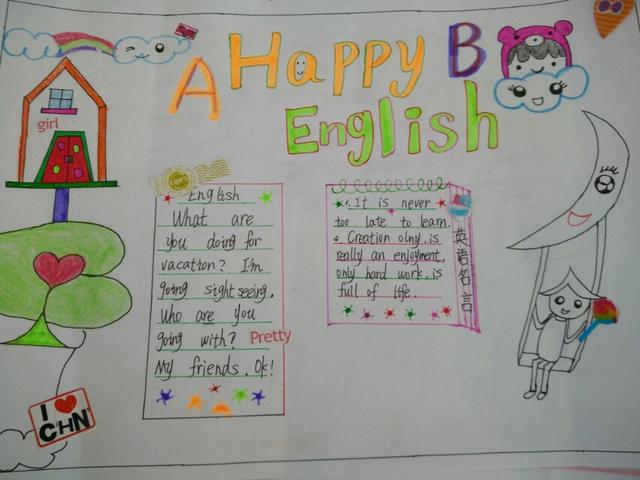 A Happy B
English
girl
English
What are
you doing for
vacation? I'm
going sightseeing.
Who are you
going with? Pretty
My friends. Ok!
1. It is never
too late to learn.
2. Creation olny.is
really an enjoyment,
only hard work.is
full of life.
英语名言
I ❤ CHN